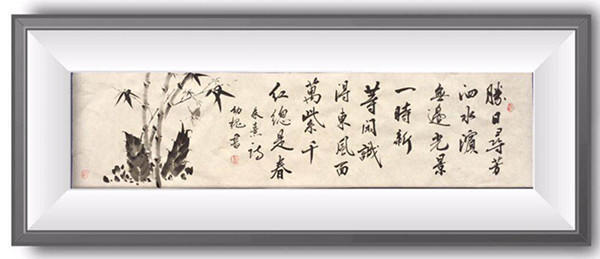 勝日尋芳
泗水濱
無邊光景
一時新
等閑識
得東風面
萬紫千
红總是春
春景詩
書